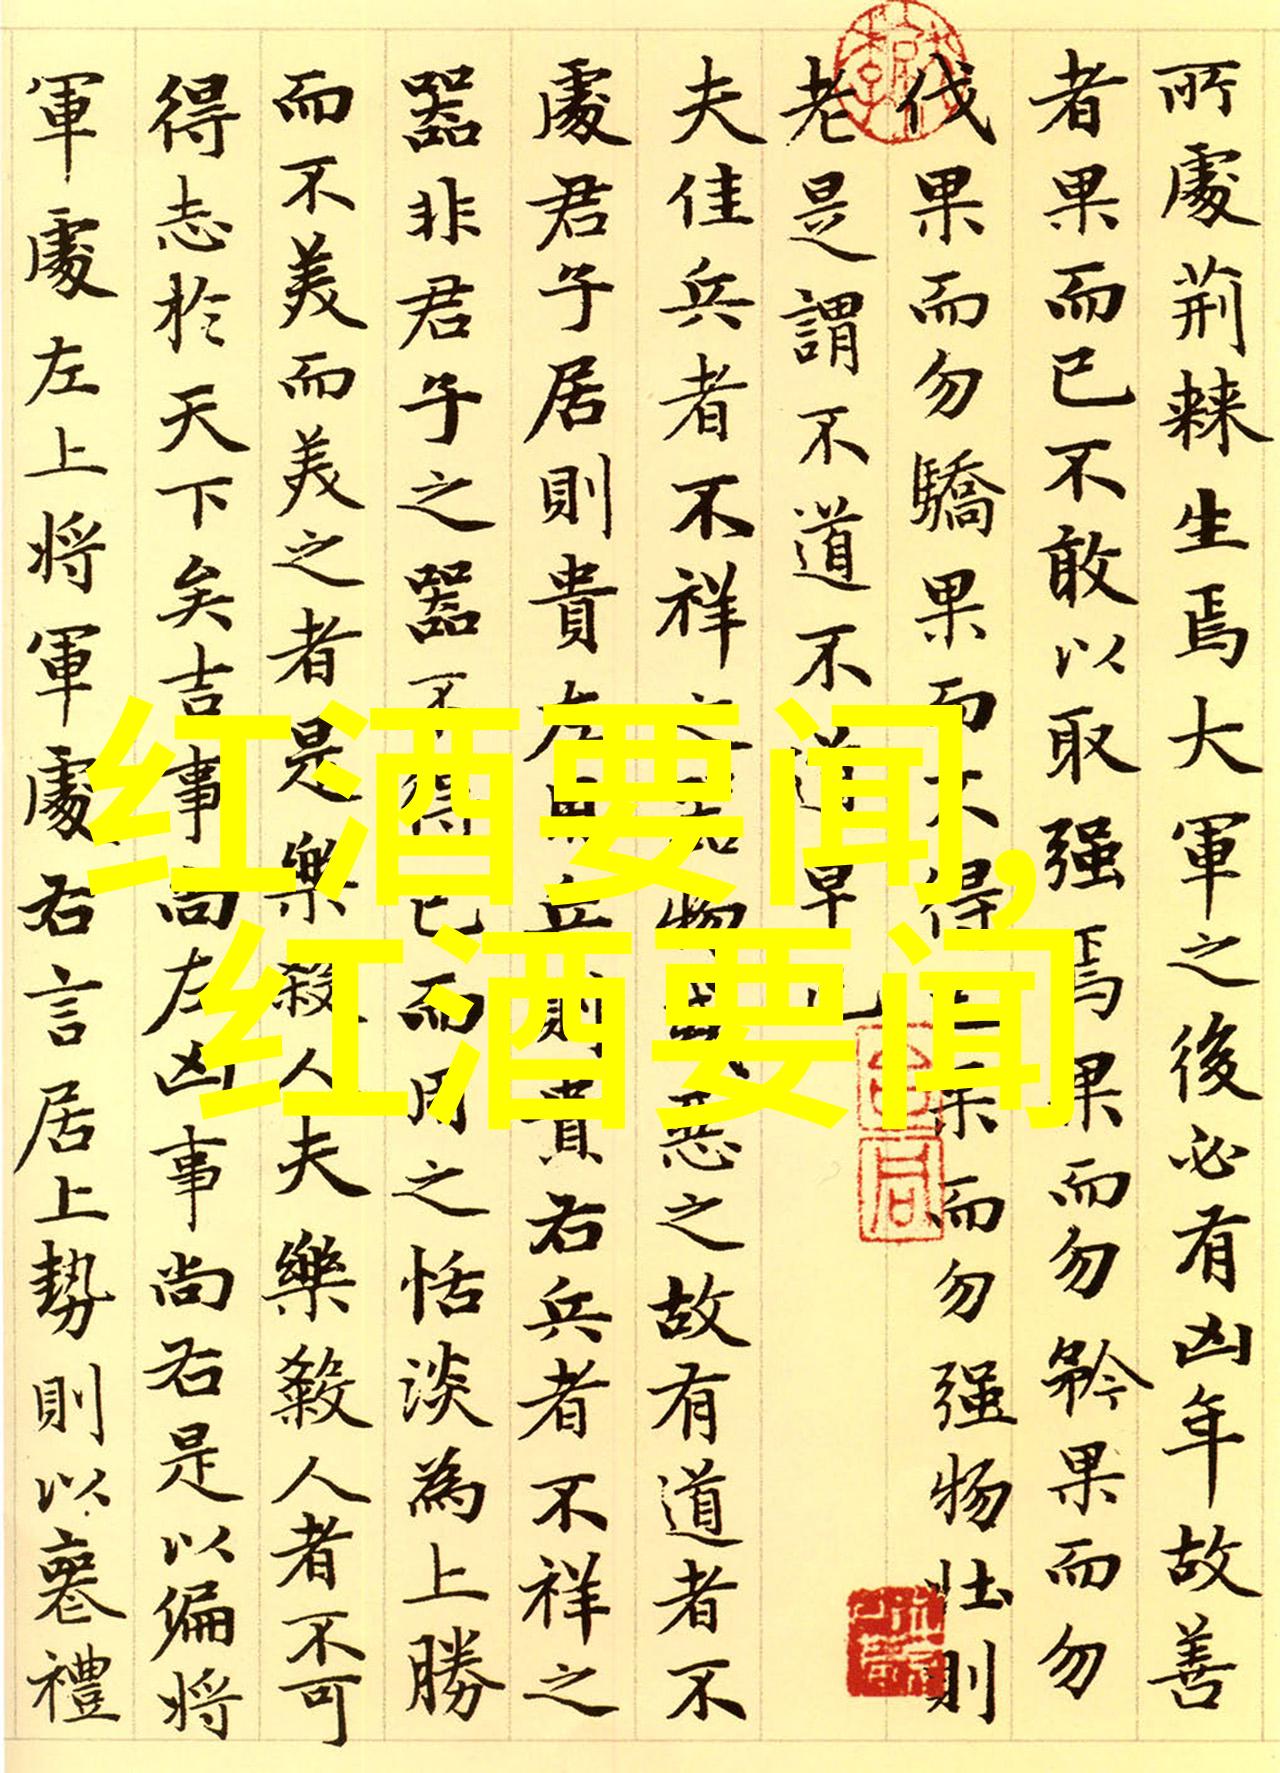 所處荆棘生焉大軍之後必有凶年故善
者果而已不敢以取强焉果而勿矜果而勿
伐果而勿驕果而不得已果而勿强物壮則
老是謂不道不道早已
夫佳兵者不祥之器物或惡之故有道者不
處君子居則貴左用兵則貴右兵者不祥之
器非君子之器不得已而用之恬淡為上勝
而不美而美之者是樂殺人夫樂殺人者不可
得志於天下矣吉事尚左凶事尚右是以偏将
軍處左上将軍處右言居上勢則以喪禮
红酒要闻,
红酒要闻